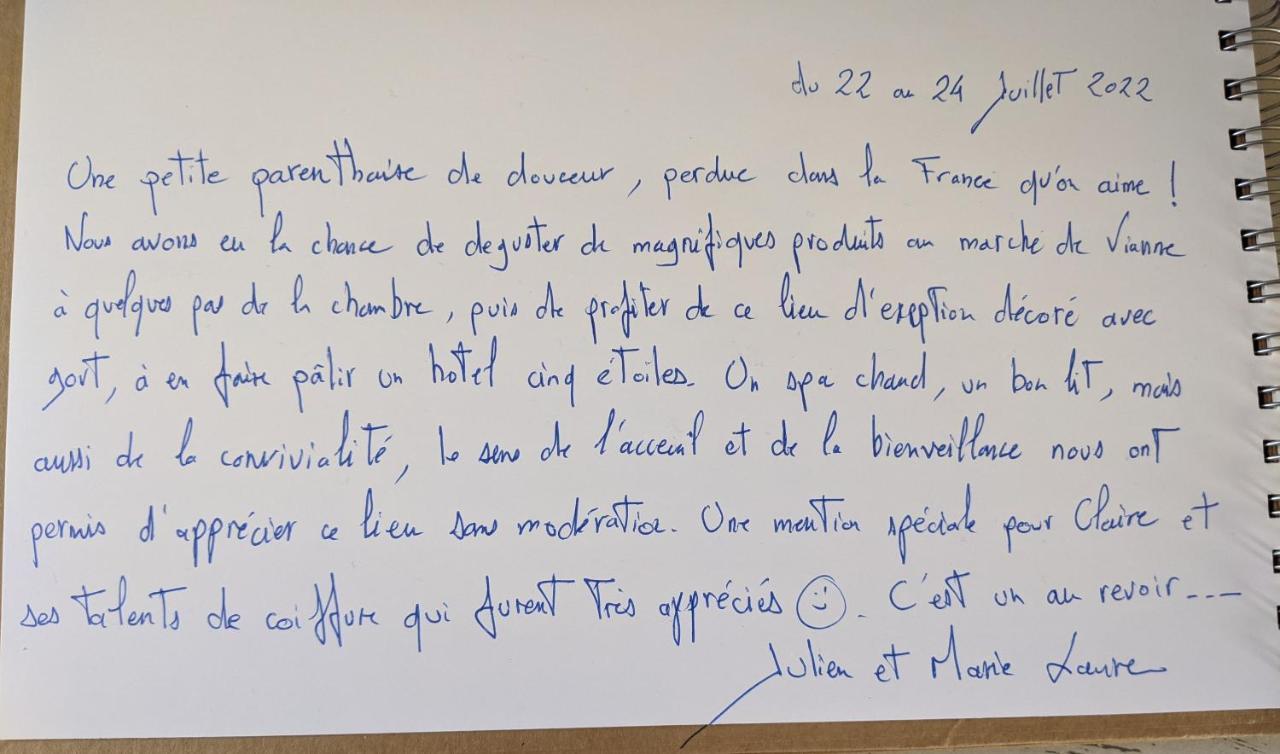 du 22 au 24 Juillet 2022
Une petite parenthaise de douceur, perdue dans la France qu'on aime !
Nous avons eu la chance de deguster de magnifiques produits au marché de Vianne
à quelques pas de la chambre, puis de profiter de ce lieu d'exeption décoré avec
gout, à en faire pâlir un hotel cinq étoiles. Un spa chaud, un bon lit, mais
aussi de la convivialité, le sens de l'acceuil et de la bienveillance nous ont
permis d'apprécier ce lieu sans modération. Une mention spéciale pour Claire et
ses talents de coiffure qui furent très appréciés ☺. C'est un au revoir----
Julien et Marie Laure